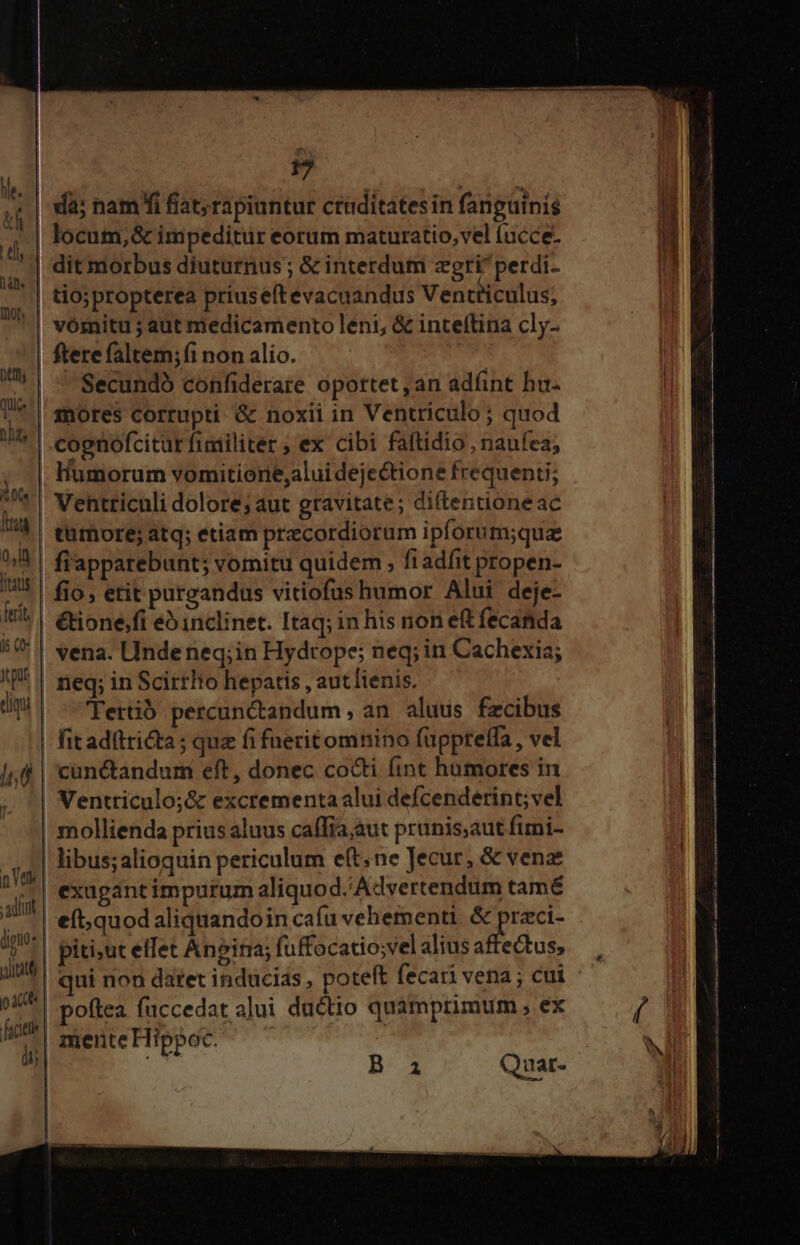 19
da; nam ſi fiat, rapiuntur cruditates in ſanguinis
locum, & impeditur eorum maturatio, vel ſucce-
dit morbus diuturnus; & interdum ægri perdi-
tio; propterea prius eſt evacuandus Ventriculus,
vomitu; aut medicamento leni, & inteſtina cly-
ſtere ſaltem; ſi non alio.
Secundò conſiderare oportet, an adſint hu-
mores corrupti & noxii in Ventriculo; quod
cognoſcitur ſimiliter, ex cibi faſtidio, nauſea,
humorum vomitione, alui dejectione frequenti;
Ventriculi dolore, aut gravitate; diſtentione ac
tumore; atq; etiam præcordiorum ipſorum; quæ
ſi apparebunt; vomitu quidem, ſi adſit propen-
ſio, erit purgandus vitioſus humor Alui deje-
ctione, ſi eò inclinet. Itaq; in his non eſt ſecanda
vena. Unde neq; in Hydrope; neq; in Cachexia;
neq; in Scirrho hepatis, aut lienis.
Tertiò percunctandum, an aluus fæcibus
ſit adſtricta; quæ ſi fuerit omnino ſuppreſſa, vel
cunctandum eſt, donec cocti ſint humores in
Ventriculo; & excrementa alui deſcenderint; vel
mollienda prius aluus caſſia, aut prunis, aut ſimi-
libus; alioquin periculum eſt, ne Jecur, & venæ
exugant impurum aliquod. Advertendum tamē
eſt, quod aliquando in caſu vehementi & præci-
piti, ut eſſet Angina; ſuffocatio; vel alius affectus,
qui non daret inducias, poteſt ſecari vena; cui
poſtea ſuccedat alui ductio quamprimum, ex
mente Hippoc.
B 2 Quar-